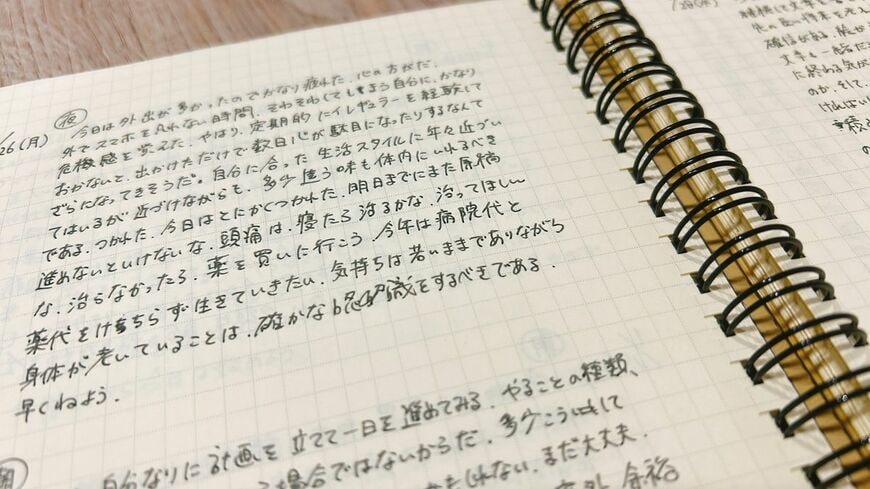 26(月)
夜
今日は外出が多かったのでかなり疲れた。心の方がだ。
外でスマホを見れない時間、そわそわしてしまう自分に、かなり
危機感を覚えた。やはり、定期的にイレギュラーを経験して
おかないと、出かけただけで数日心が駄目になったりするなんて
ざらになってきそうだ。自分に合った生活スタイルに年々近づい
てはいるが近づけながらも、多少違う味も体内にいれるべき
である。つかれた。今日はとにかくつかれた。明日までにまた原稿
進めないといけないな。頭痛は、寝たら治るかな。治ってほしい
な。治らなかったら、薬を買いに行こう。今年は病院代と
薬代をけちらず生きていきたい。気持ちは若いままでありながら
身体が老いていることは、確かな 認識をするべきである。
早くねよう。
朝
自分なりに計画を立てて一日を進めてみる。やることの種類、
場合ではないからだ。多少こう
もしれない。まだ大丈夫。
余裕
/28(水)
確信がある。
に終わる気が
のか。そして、
ければい